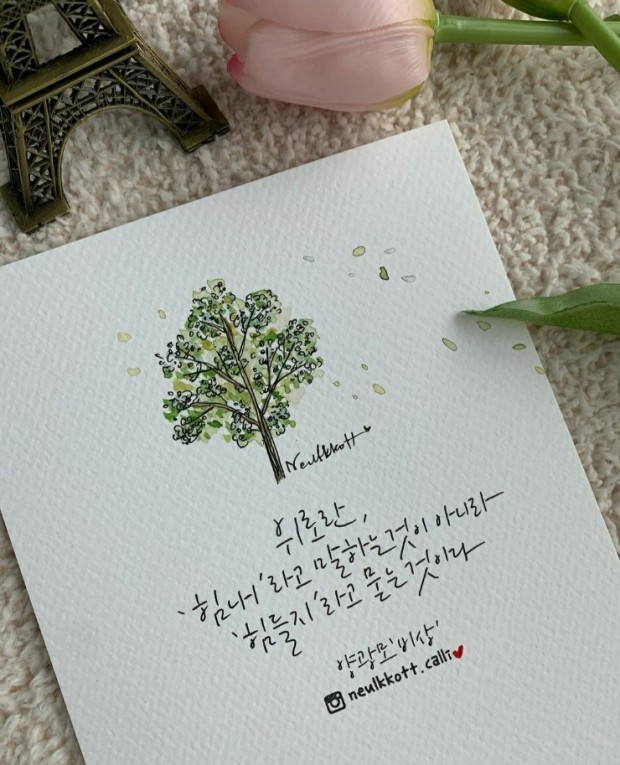 Neulkkott
위로란,
'힘내'라고 말하는것이 아니라
'힘들지'라고 묻는것이다
양광모'비상'
neulkkott.calli